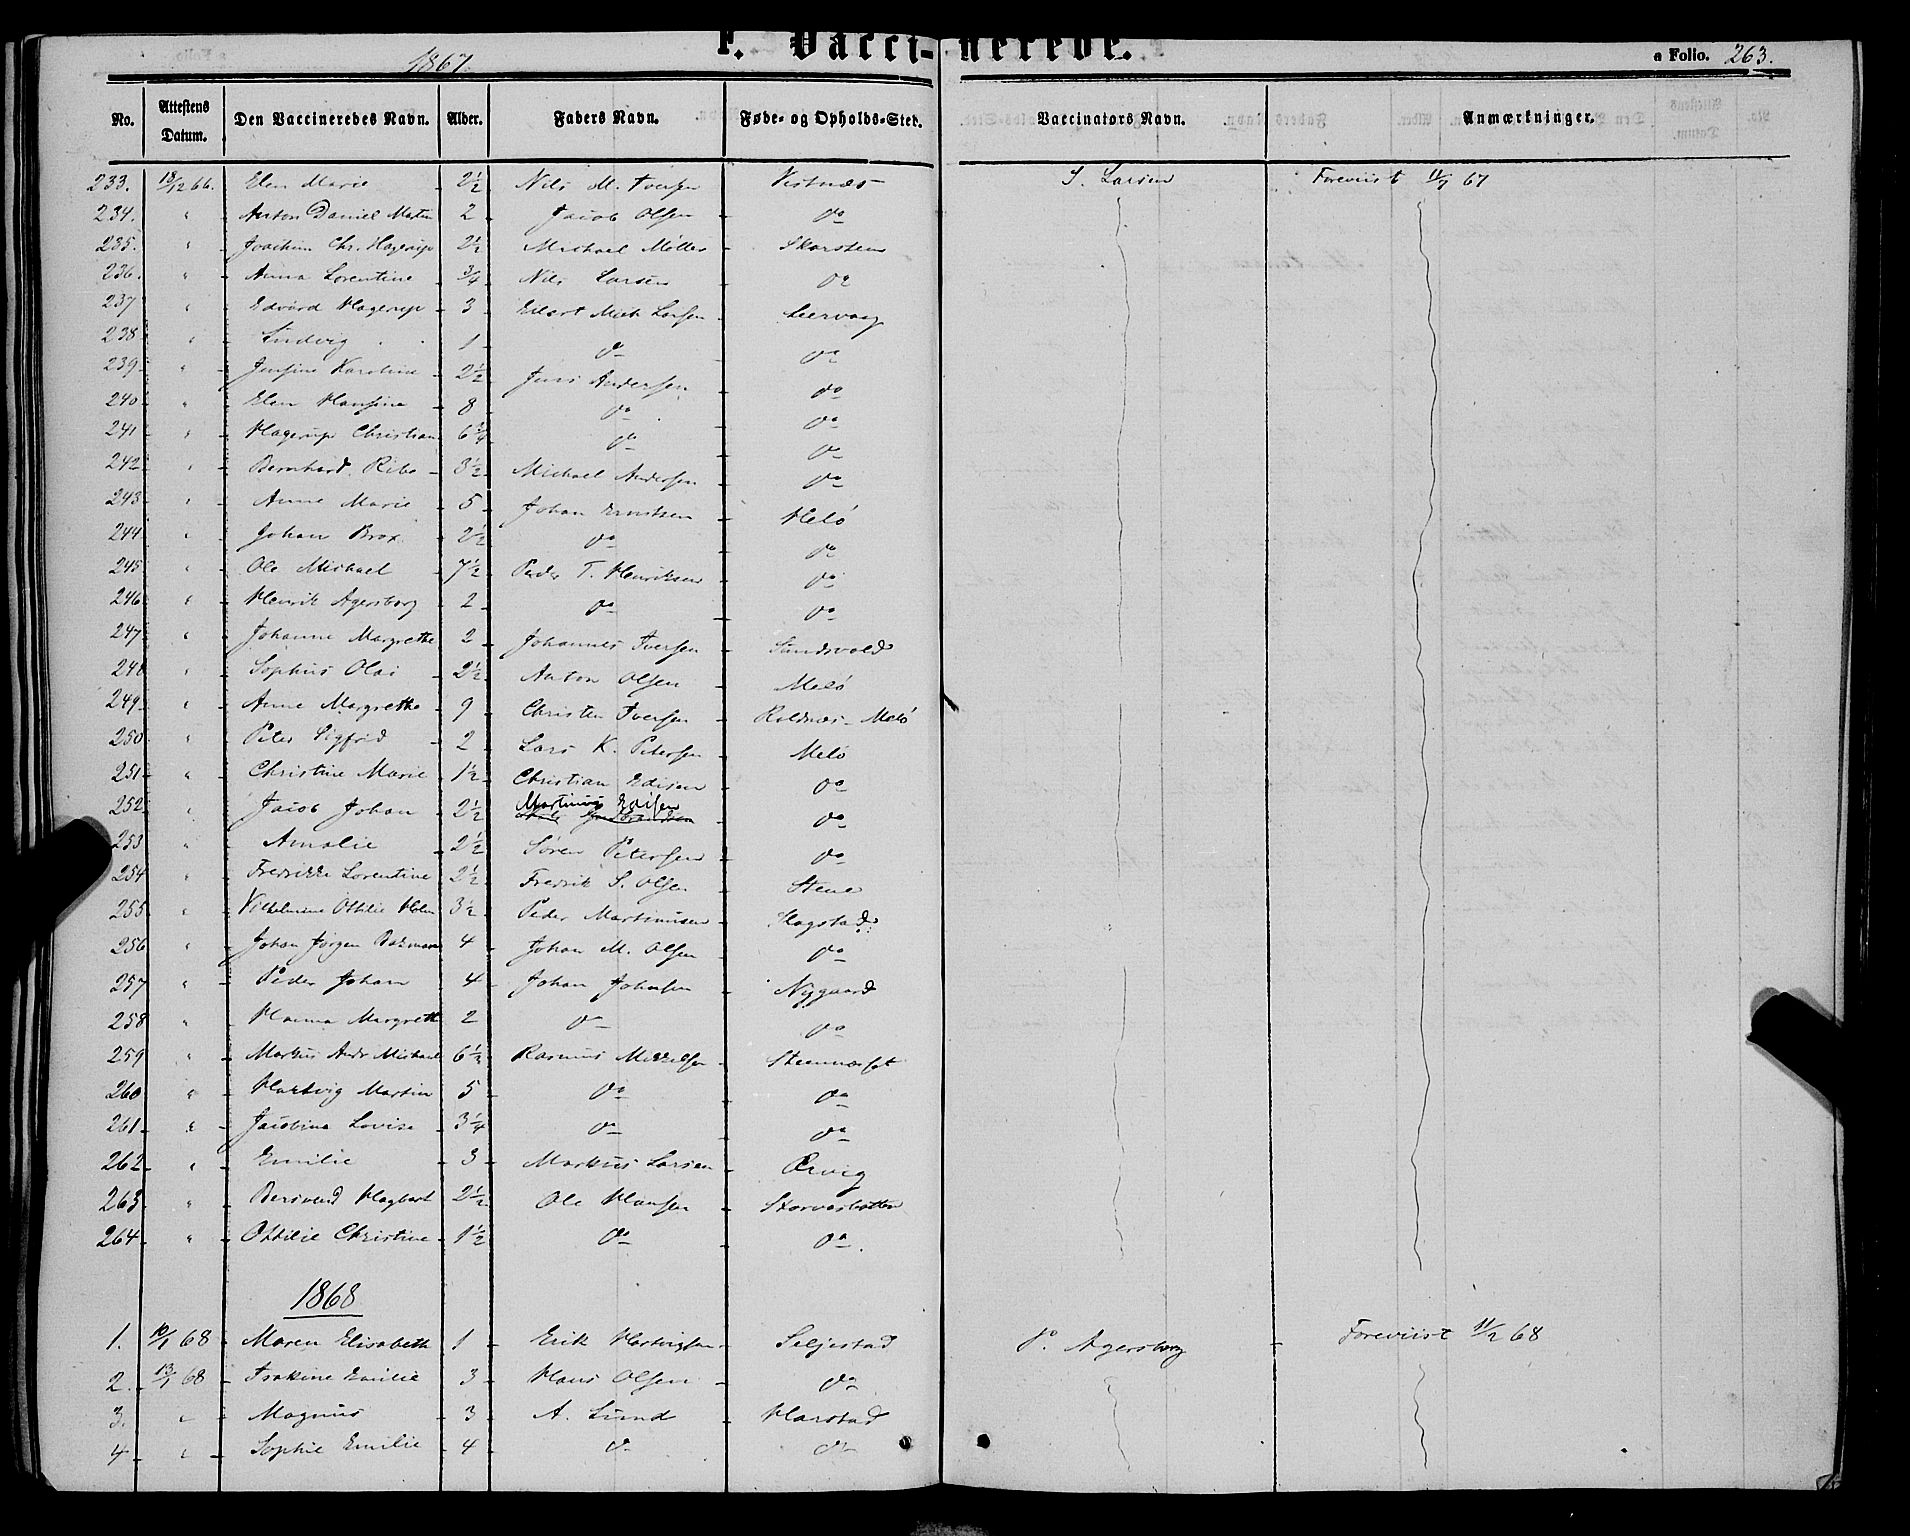 F. Vaccinerede.
1867.
a Folio. 263.
No. Attestens Datum. Den Vaccineredes Navn. Alder. Faders Navn. Føde- og Opholds-Sted. Vaccinators Navn. Anmærkninger.
233. 18/12 66. Elen Marie 2½ Nils M. Iversen Vestnæs S. Larsen Foreviist 11/7 67
234. " Anton Daniel Martin 2 Jacob Olsen do
235. " Joachim Chr. Hagerup 2½ Michael Møller Skarstein
236. " Anna Lorentine ¾ Nils Larsen do
237 " Edvard Hagerup 3 Eilert Mich Larsen Leervaag
238 " Ludvig 1 do do
239 " Jensine Karoline 2½ Jens Andersen do
240 " Elen Hansine 8 do do
241 " Hagerup Christian 6¼ do do
242 " Bernhard Ribe 3½ Michael Andersen do
243 " Anne Marie 5 Johan Erntsen Melö
244 " Johan Brox 2½ do do
245 " Ole Michael 7½ Peder T. Henriksen do
246 " Henrik Agersborg 2 do do
247 " Johanne Margrethe 2 Johannes Iversen Sundsvold
248 " Sophus Olai 2½ Anton Olsen Melö
249 " Anne Margrethe 9 Christen Iversen Roldnæs - Melö
250 " Peter Sigfrid 2 Lars K. Petersen Melö
251 " Christine Marie 1½ Christian Edisen do
252 " Jacob Johan 2½ Martinus Edisen do
253 " Amalie 2½ Søren Petersen do
254 " Fredrikke Lorentine 2½ Fredrik S. Olsen Stene
255 " Vilhelmine Ottilie Holm 3½ Peder Martinusen Hagstad
256 " Johan Jørgen 4 Johan M. Olsen do
257 " Peder Johan 4 Johan Johnsen Nygaard
258 " Hanna Margreth 2 do do
259 " Markus Andr Michael 6½ Rasmus Mikkelsen
260 " Hartvig Martin 5 do do
261 " Jacobina Lovise 3¼ do do
262 " Emilie 3 Markus Larsen Ervig
263 " Berivend Hagbart 2½ Ole Hansen Storvasbotten
264 " Ottilie Christine 1½ do do
1868
1. 10/1 68 Maren Elisabeth 1 Erik Hartvigsen Seljestad P. Agersborg Foreviist 11/2 68
2. 13/1 68 Trakine Emilie 3 Hans Olsen do
3. " Magnus 3 A. Lund Harstad
4 " Sophie Emilie 4 do do